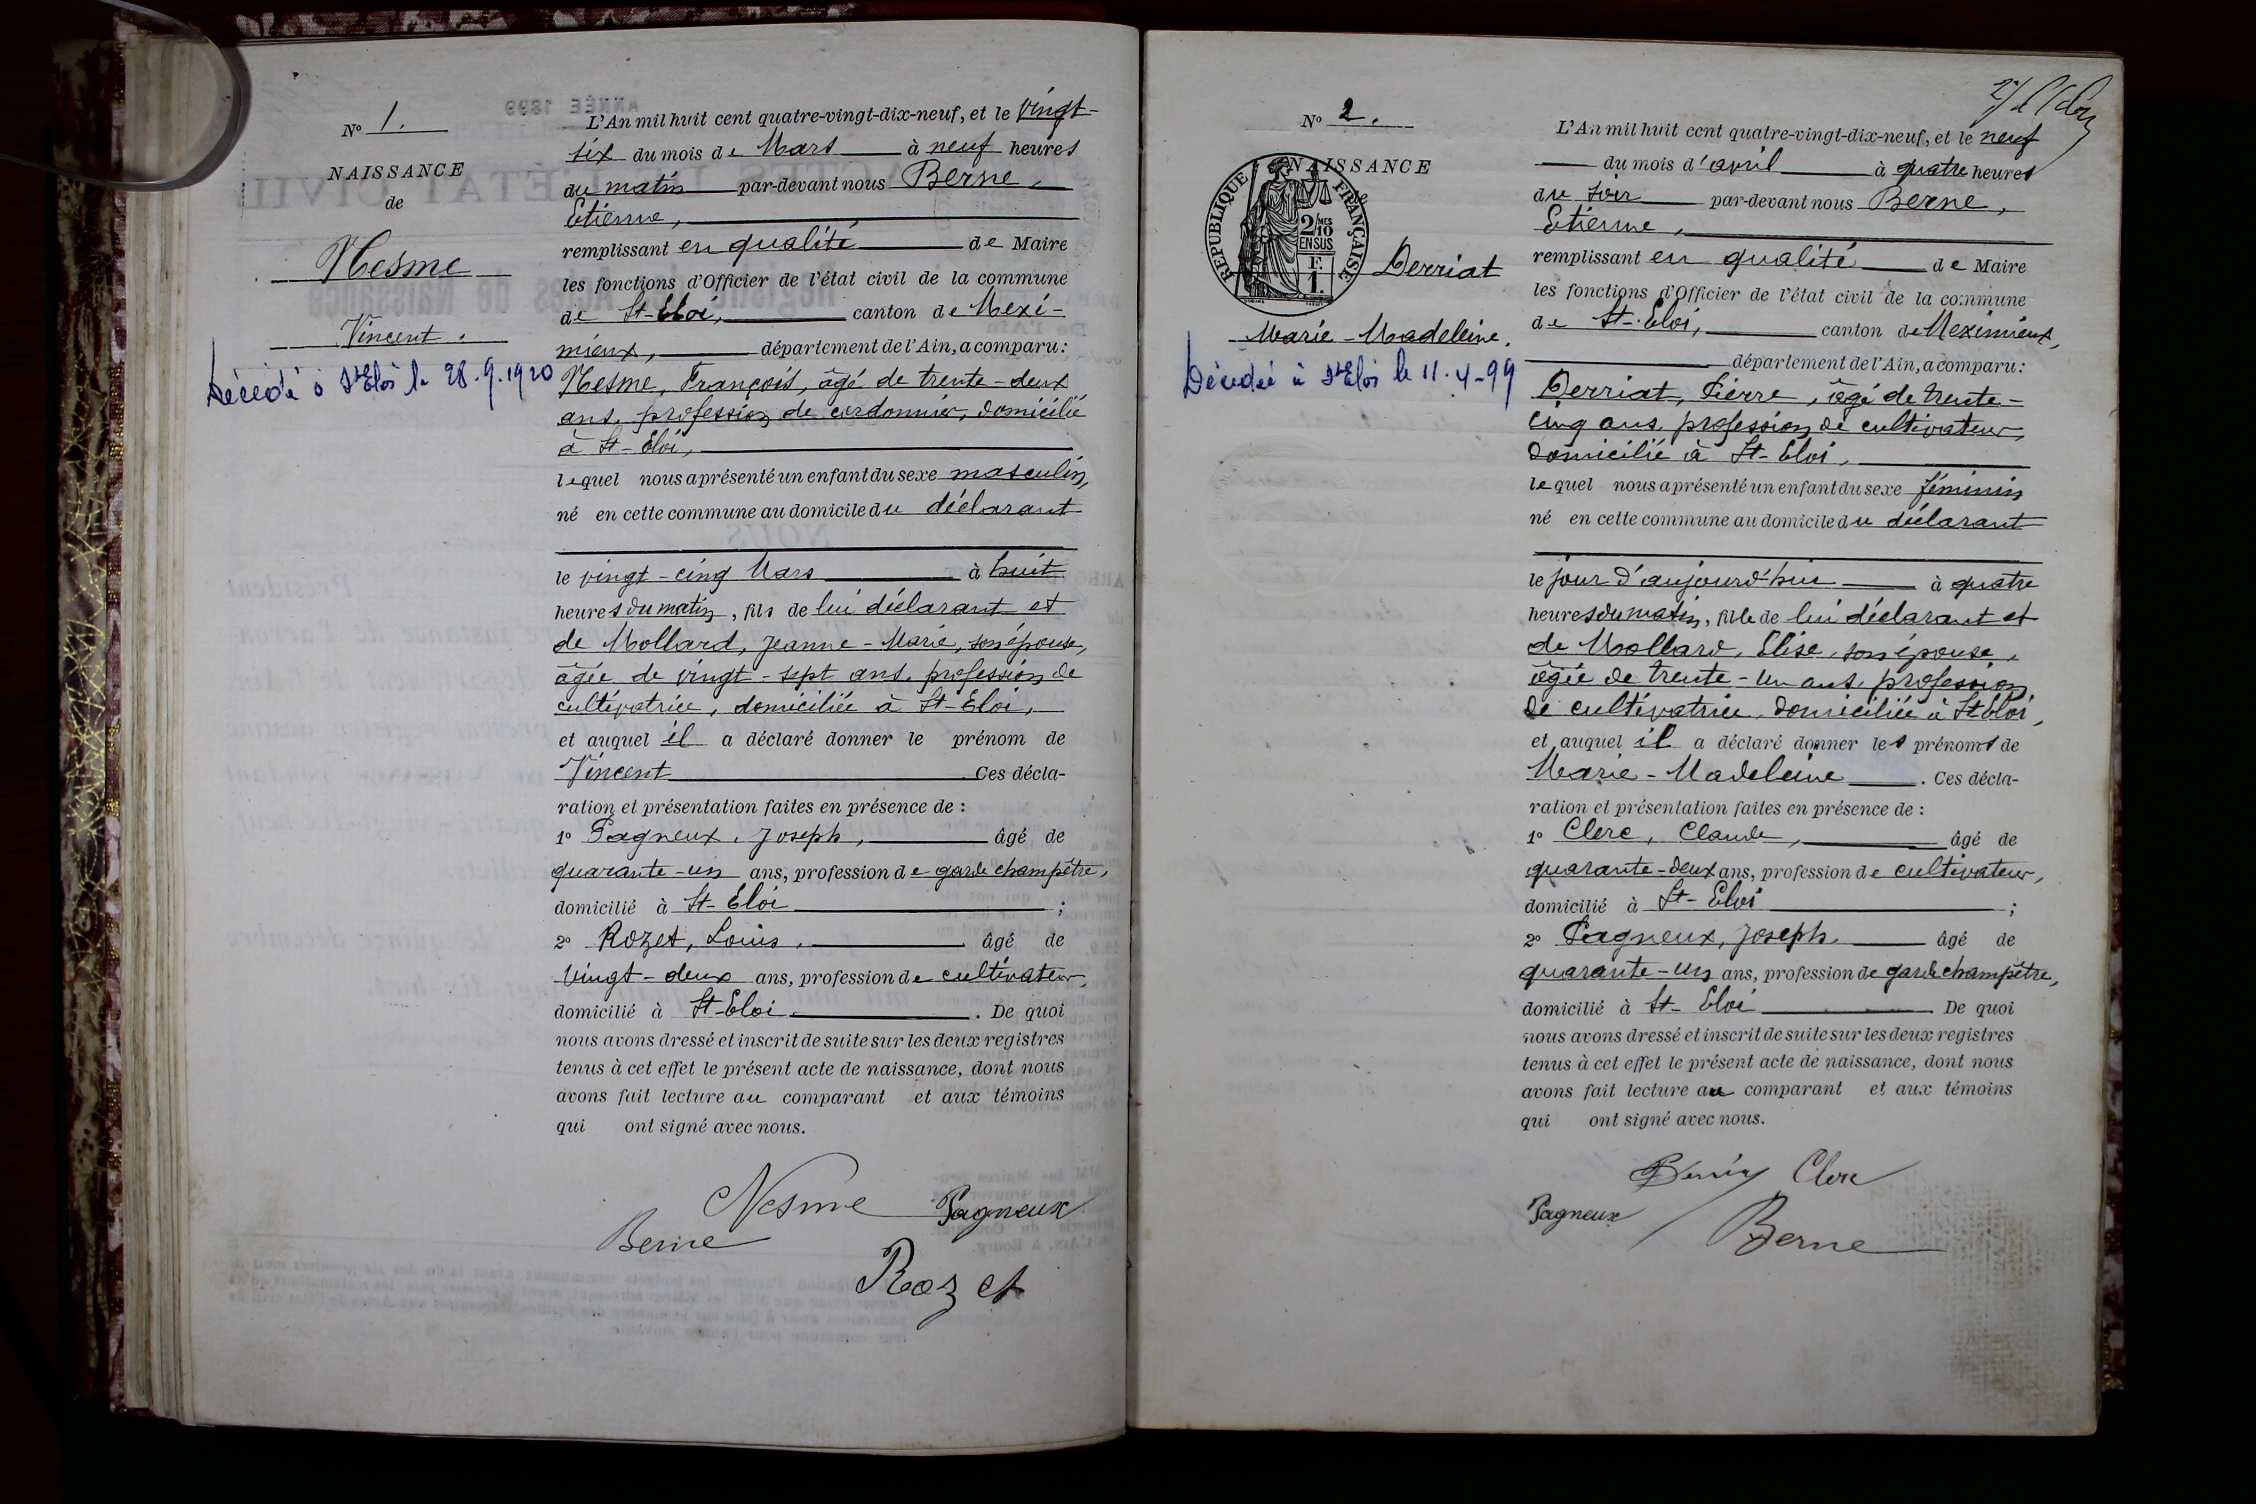 N° 1.
NAISSANCE
de
Nesme
Vincent.
Décédé à St Eloi le 28.9.1920
L'An mil huit cent quatre-vingt-dix-neuf, et le vingt-
six du mois de Mars à neuf heures
du matin par-devant nous Berne,
Etienne,
remplissant en qualité de Maire
les fonctions d'Officier de l'état civil de la commune
de St-Eloi, canton de Mexi-
mieux, département de l'Ain, a comparu:
Nesme, François, âgé de trente-deux
ans, profession de cordonnier, domicilié
à St-Eloi,
lequel nous a présenté un enfant du sexe masculin,
né en cette commune au domicile du déclarant
le vingt-cinq Mars à huit
heures du matin, fils de lui déclarant et
de Mollard, Jeanne-Marie, son épouse,
âgée de vingt-sept ans, profession de
cultivatrice, domiciliée à St-Eloi,
et auquel il a déclaré donner le prénom de
Vincent Ces décla-
ration et présentation faites en présence de :
1° Pagneux, Joseph, âgé de
quarante-un ans, profession de garde champêtre,
domicilié à St-Eloi ;
2° Rozet, Louis, âgé de
vingt-deux ans, profession de cultivateur,
domicilié à St-Eloi. De quoi
nous avons dressé et inscrit de suite sur les deux registres
tenus à cet effet le présent acte de naissance, dont nous
avons fait lecture au comparant et aux témoins
qui ont signé avec nous.
Nesme Pagneux
Berne
Rozet
N° 2.
NAISSANCE
de
RÉPUBLIQUE FRANÇAISE
2/10 MES
EN SUS
F.
1.
Derriat
Marie-Madeleine.
Décédée à St Eloi le 11.4-99
L'An mil huit cent quatre-vingt-dix-neuf, et le neuf
du mois d'avril à quatre heures
du soir par-devant nous Berne,
Etienne,
remplissant en qualité de Maire
les fonctions d'Officier de l'état civil de la commune
de St-Eloi, canton de Meximieux,
département de l'Ain, a comparu:
Derriat, Pierre, âgé de trente-
cinq ans, profession de cultivateur,
domicilié à St-Eloi,
lequel nous a présenté un enfant du sexe féminin
né en cette commune au domicile du déclarant
le jour d'aujourd'hui à quatre
heures du matin, fille de lui déclarant et
de Mollard, Elise, son épouse,
âgée de trente-un ans, profession
de cultivatrice, domiciliée à St Eloi,
et auquel il a déclaré donner les prénoms de
Marie-Madeleine. Ces décla-
ration et présentation faites en présence de :
1° Clerc, Claude, âgé de
quarante-deux ans, profession de cultivateur,
domicilié à St-Eloi ;
2° Pagneux, Joseph, âgé de
quarante-un ans, profession de garde champêtre,
domicilié à St-Eloi De quoi
nous avons dressé et inscrit de suite sur les deux registres
tenus à cet effet le présent acte de naissance, dont nous
avons fait lecture au comparant et aux témoins
qui ont signé avec nous.
Clerc
Pagneux
Berne